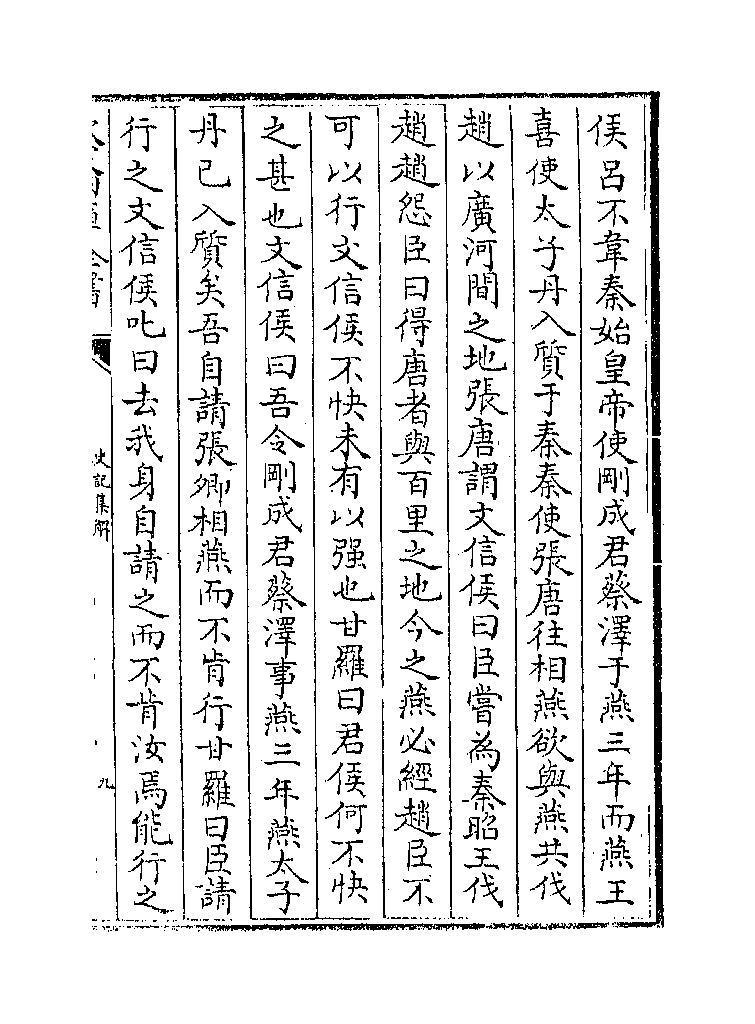 侯呂不韋秦始皇帝使剛成君蔡澤于燕三年而燕王
喜使太子丹入質于秦秦使張唐往相燕欲與燕共伐
趙以廣河間之地張唐謂文信侯曰臣嘗為秦昭王伐
趙趙怨臣曰得唐者與百里之地今之燕必經趙臣不
可以行文信侯不快未有以强也甘羅曰君侯何不快
之甚也文信侯曰吾令剛成君蔡澤事燕三年燕太子
丹已入質矣吾自請張卿相燕而不肯行甘羅曰臣請
行之文信侯叱曰去我身自請之而不肯汝焉能行之
史記集解
九